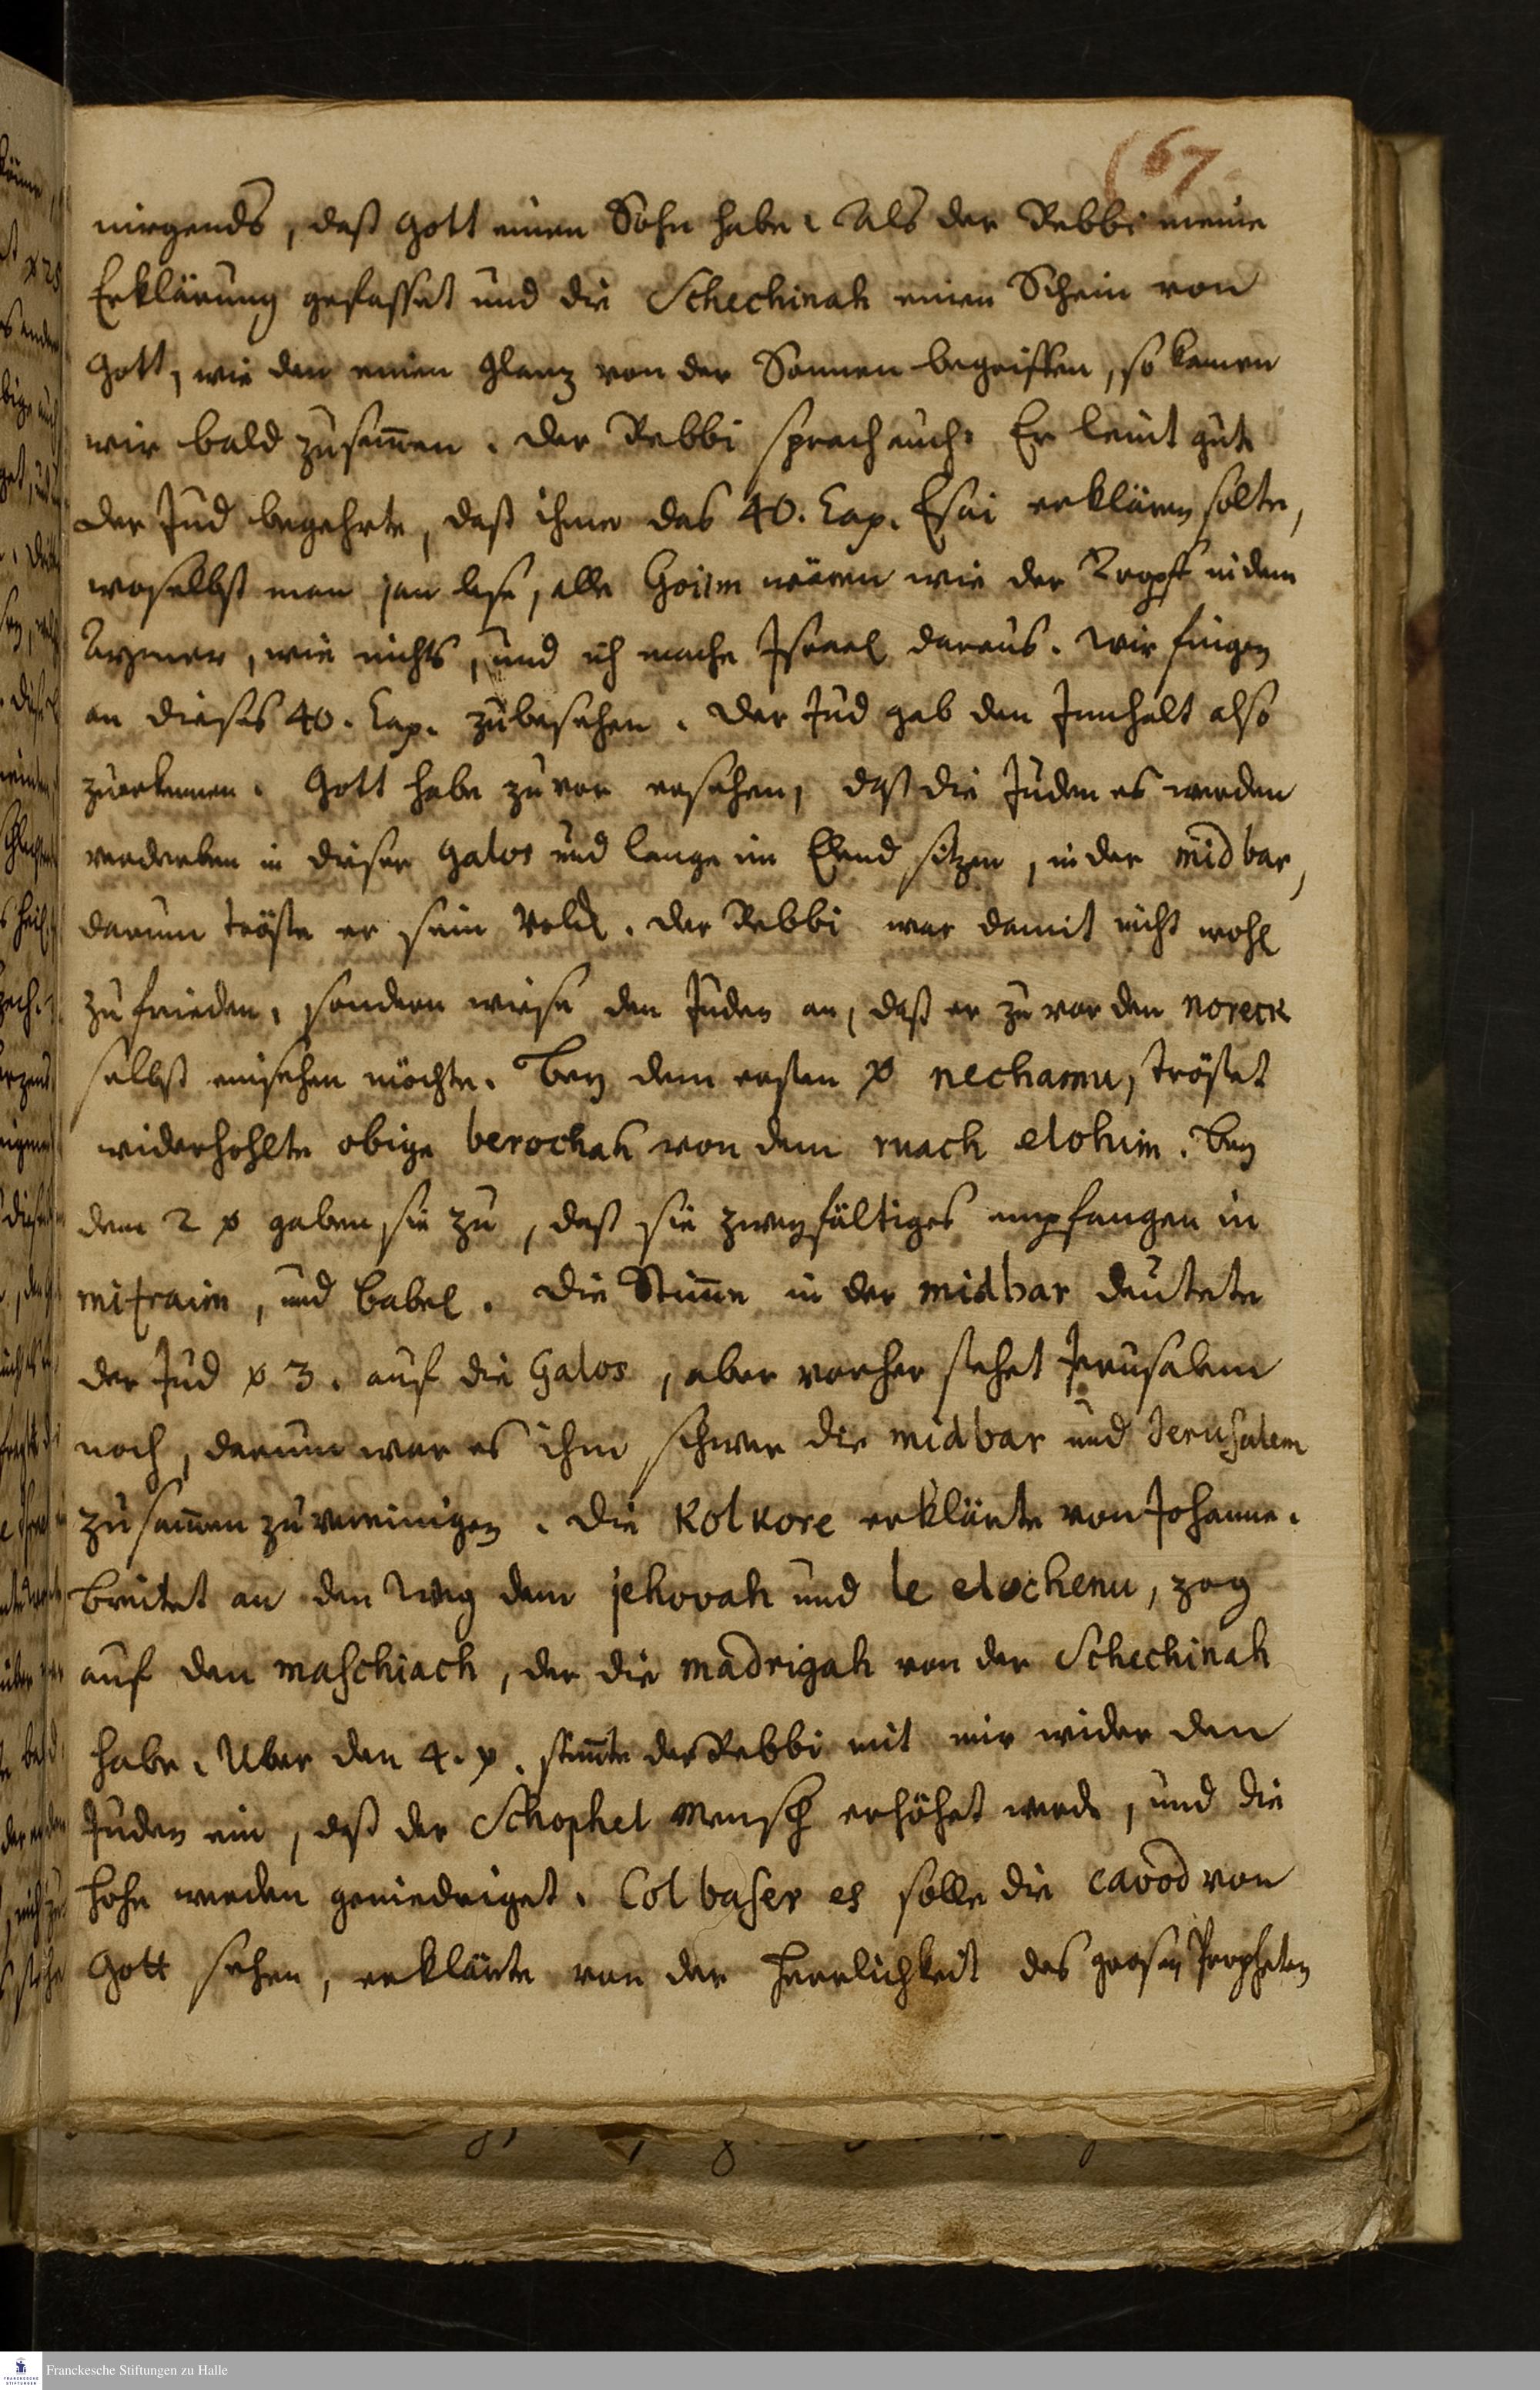 (67
nirgends, daß Gott einen Sohn habe. Als der Rebbi meine
Erklärung gefasset und die Schechinah einen Schein von
Gott, wie den einen Glanz von der Sonnen begriffen, so kamen
wir bald zusam̄en. Der Rebbi sprach auch: Er leint gut.
Der Jud begehrte, daß ihme das 40. Cap. Esai erklären solte,
woselbst man jan lese, alle Goiim wären wie der Tropf in dem
Aymer, wie nichts, und ich mache Israel daraus. Wir fingen
an dieses 40. Cap. zubesehen. Der Jud gab den Innhalt also
zuerkennen. Gott habe zuvor ersehen, daß die Juden es werden
verderben in dieser Galos und lange im Elend sitzen, in der midbar,
darum tröste er sein Volck. Der Rebbi war damit nicht wohl
zufrieden, sondern wiese den Juden an, daß er zuvor den
selbst einsehen möchte. Bey dem ersten ꝟ nechamu, tröstet
widerhohlte obige berochah von dem ruach elohim. Bey
dem 2 ꝟ gaben sie zu, daß sie zweyfältiges empfangen in
mitzraim, und Babel. Die Stim̄e in der midbar deutete
der Jud ꝟ 3. auf die Galos, aber vorher stehet Jerusalem
noch, darum war es ihm schwer die midbar und Jerusalem
zusam̄en zuvereinigen. Die Kol kore erklärte von Johanne.
Breitet an den Weg dem jehovah und le elochenu, zog
auf den maschiach, der die madrigah von der Schechinah
habe. Uber den 4. ꝟ. stim̄te der Rebbi mit mir wider den
Juden ein, daß der Schophel Mensch erhöhet werde, und die
hohe werden geniedriget. Col baser es solle die cavod von
Gott sehen, erklärte von der Herrlichkeit des grosen Propheten
Franckesche Stiftungen zu Halle